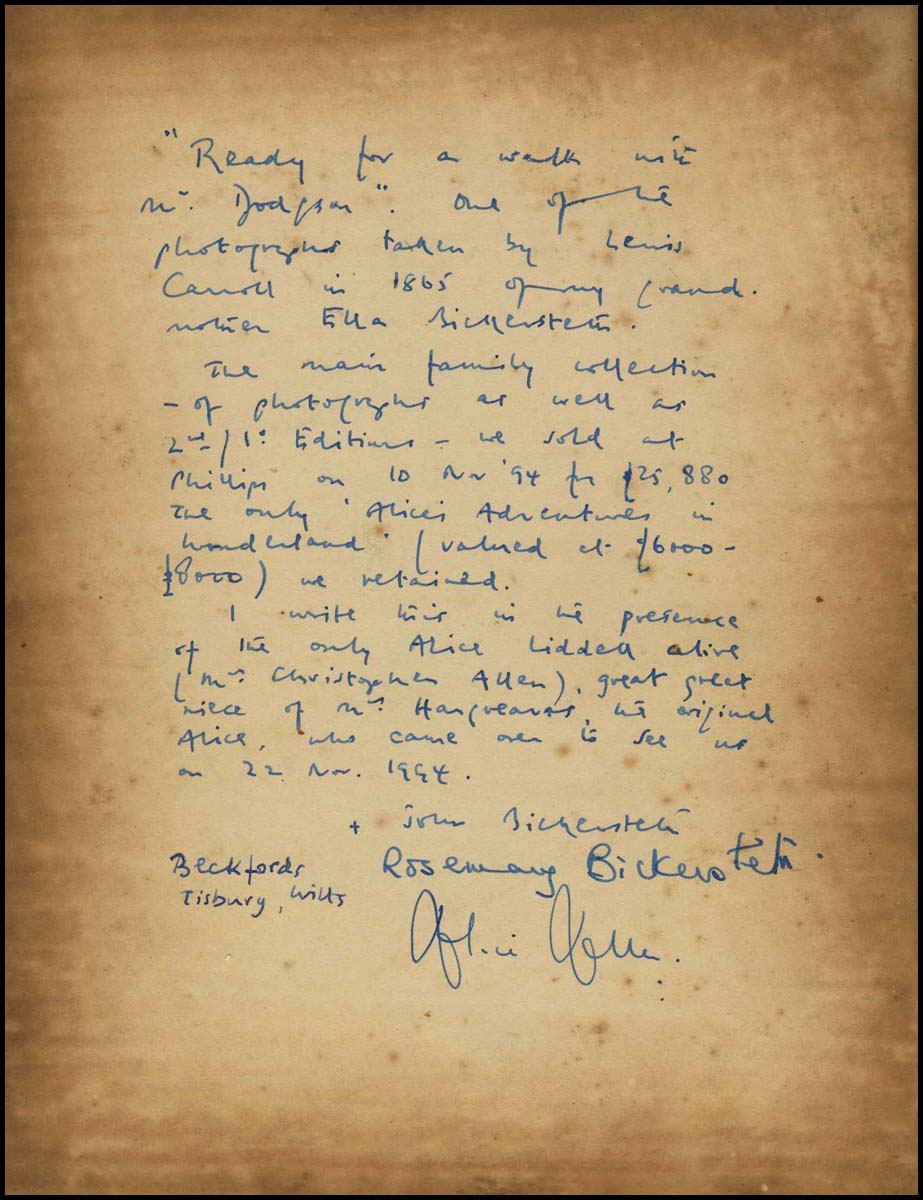 "Ready for a walk with
Mr. Dodgson". One of the
photographs taken by Lewis
Carroll in 1865 of my grand-
mother Ella Bickersteth.
The main family collection
- of photographs as well as
2nd / 1st Editions - we sold at
Phillips on 10 Nov '94 for £25,880
The only 'Alice's Adventures in
Wonderland' (valued at £6000-
£8000) we retained.
I write this in the presence
of the only Alice Liddell alive
(Mrs Christopher Allen), great great
niece of Mrs Hargreaves, the original
Alice, who came over to see us
on 22 Nov. 1994.
+ John Bickersteth
Rosemary Bickersteth.
Beckfords
Tisbury, Wilts
Alice Allen.